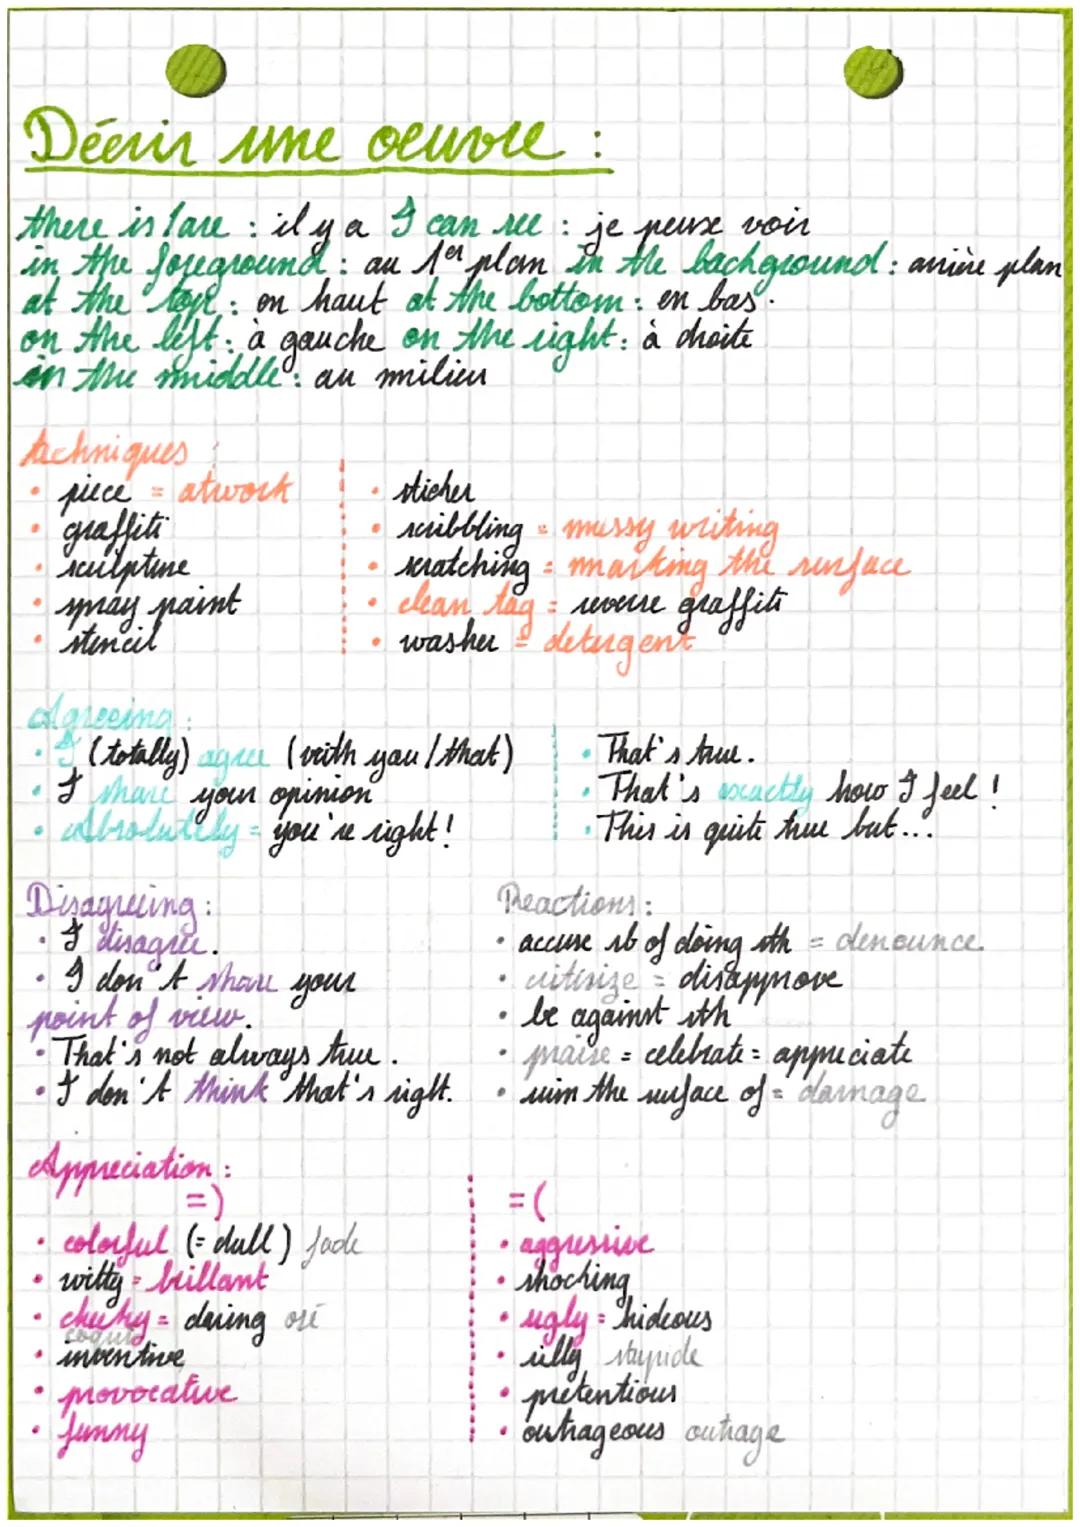 Décrir une oeuvre :
there is / are : il y a I can see : je peux voir
in the foreground : au 1er plan in the background : arrière plan
at the top : en haut at the bottom : en bas.
on the left : à gauche on the right : à droite
in the middle : au milieu
techniques :
• piece = atwork
• graffiti
• sculpture
• spray paint
• stencil
• sticker
• scribbling = messy writing
• scratching = marking the surface
• clean tag = reverse graffiti
• washer = detergent
Agreeing :
• I (totally) agree (with you / that)
• I share your opinion
• Absolutely = you're right !
• That's true.
• That's exactly how I feel !
• This is quite true but...
Disagreeing :
• I disagree.
• I don't share your
point of view.
• That's not always true.
• I don't think that's right.
Reactions :
• accuse sb of doing sth = denounce
• critisize = disapprove
• be against sth
• praise = celebrate = appreciate
• ruin the surface of = damage
Appreciation :
=)
• colorful (= dull) fade
• witty = brillant
• cheeky = daring osé
coquin
• inventive
• provocative
• funny
=(
• aggressive
• shocking
• ugly = hideous
• silly stupide
• pretentious
• outrageous outrage